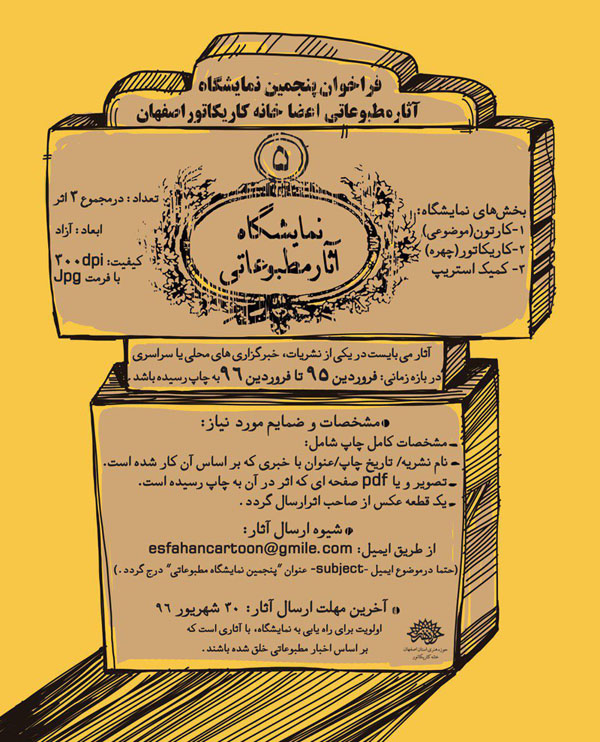 فراخوان پنجمین نمایشگاه
آثار مطبوعاتی اعضا خانه کاریکاتور اصفهان
۵
نمایشگاه
آثار مطبوعاتی
بخش‌های نمایشگاه:
۱-کارتون(موضوعی)
۲-کاریکاتور(چهره)
۳- کمیک استریپ
تعداد: درمجموع ۳ اثر
ابعاد: آزاد
کیفیت: ۳۰۰dpi
با فرمت Jpg
آثار می بایست در یکی از نشریات، خبرگزاری های محلی یا سراسری
در بازه زمانی: فروردین ۹۵ تا فروردین ۹۶ به چاپ رسیده باشد
مشخصات و ضمایم مورد نیاز:
ـ مشخصات کامل چاپ شامل:
ـ نام نشریه/ تاریخ چاپ/عنوان با خبری که بر اساس آن کار شده است.
ـ تصویر و یا pdf صفحه ای که اثر در آن به چاپ رسیده است.
ـ یک قطعه عکس از صاحب اثرارسال گردد .
شیوه ارسال آثار:
از طریق ایمیل: esfahancartoon@gmile.com
(حتما درموضوع ایمیل -subject- عنوان "پنجمین نمایشگاه مطبوعاتی" درج گردد .)
آخرین مهلت ارسال آثار: ۳۰ شهریور ۹۶
اولویت برای راه یابی به نمایشگاه، با آثاری است که
بر اساس اخبار مطبوعاتی خلق شده باشند.
حوزه هنری استان اصفهان
خانه کاریکاتور